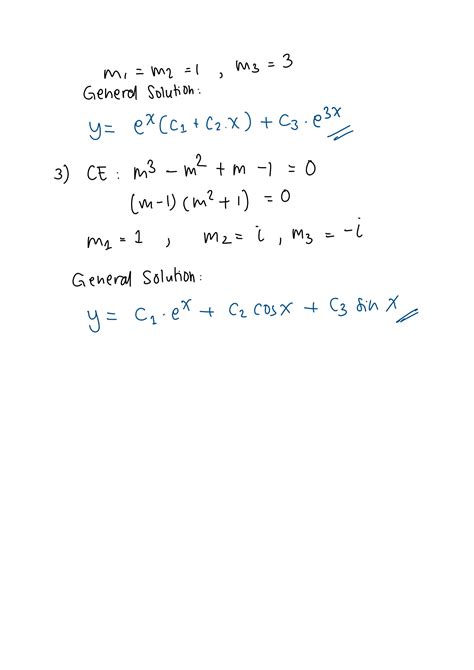 m₁ = m₂ = 1 , m₃ = 3
General Solution:
y = eˣ(C₁ + C₂.x) + C₃ · e³ˣ
3) CE : m³ − m² + m − 1 = 0
(m−1)(m² + 1) = 0
m₁ = 1 , m₂ = i , m₃ = −i
General Solution:
y = C₁ · eˣ + C₂ cos x + C₃ sin x